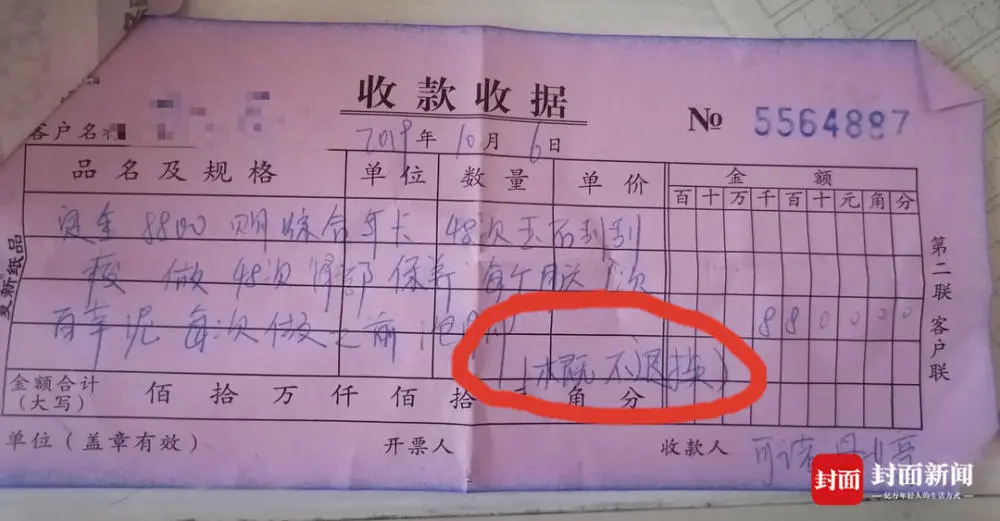 收款收据
№ 5564887
客户名称
2019年10月6日
品名及规格 单位 数量 单价 金额
百 十 万 千 百 十 元 角 分
定金 8800 购综合年卡 48次玉石刮刮
做 48次 部保养 每个月送1次
8 8 0 0 0 0
百草泥 每次做之前
(概不退换)
金额合计(大写) 佰 拾 万 仟 佰 拾 角 分
单位(盖章有效) 开票人 收款人
第二联 客户联
复新纸品
封面 封面新闻
亿万年轻人的生活方式